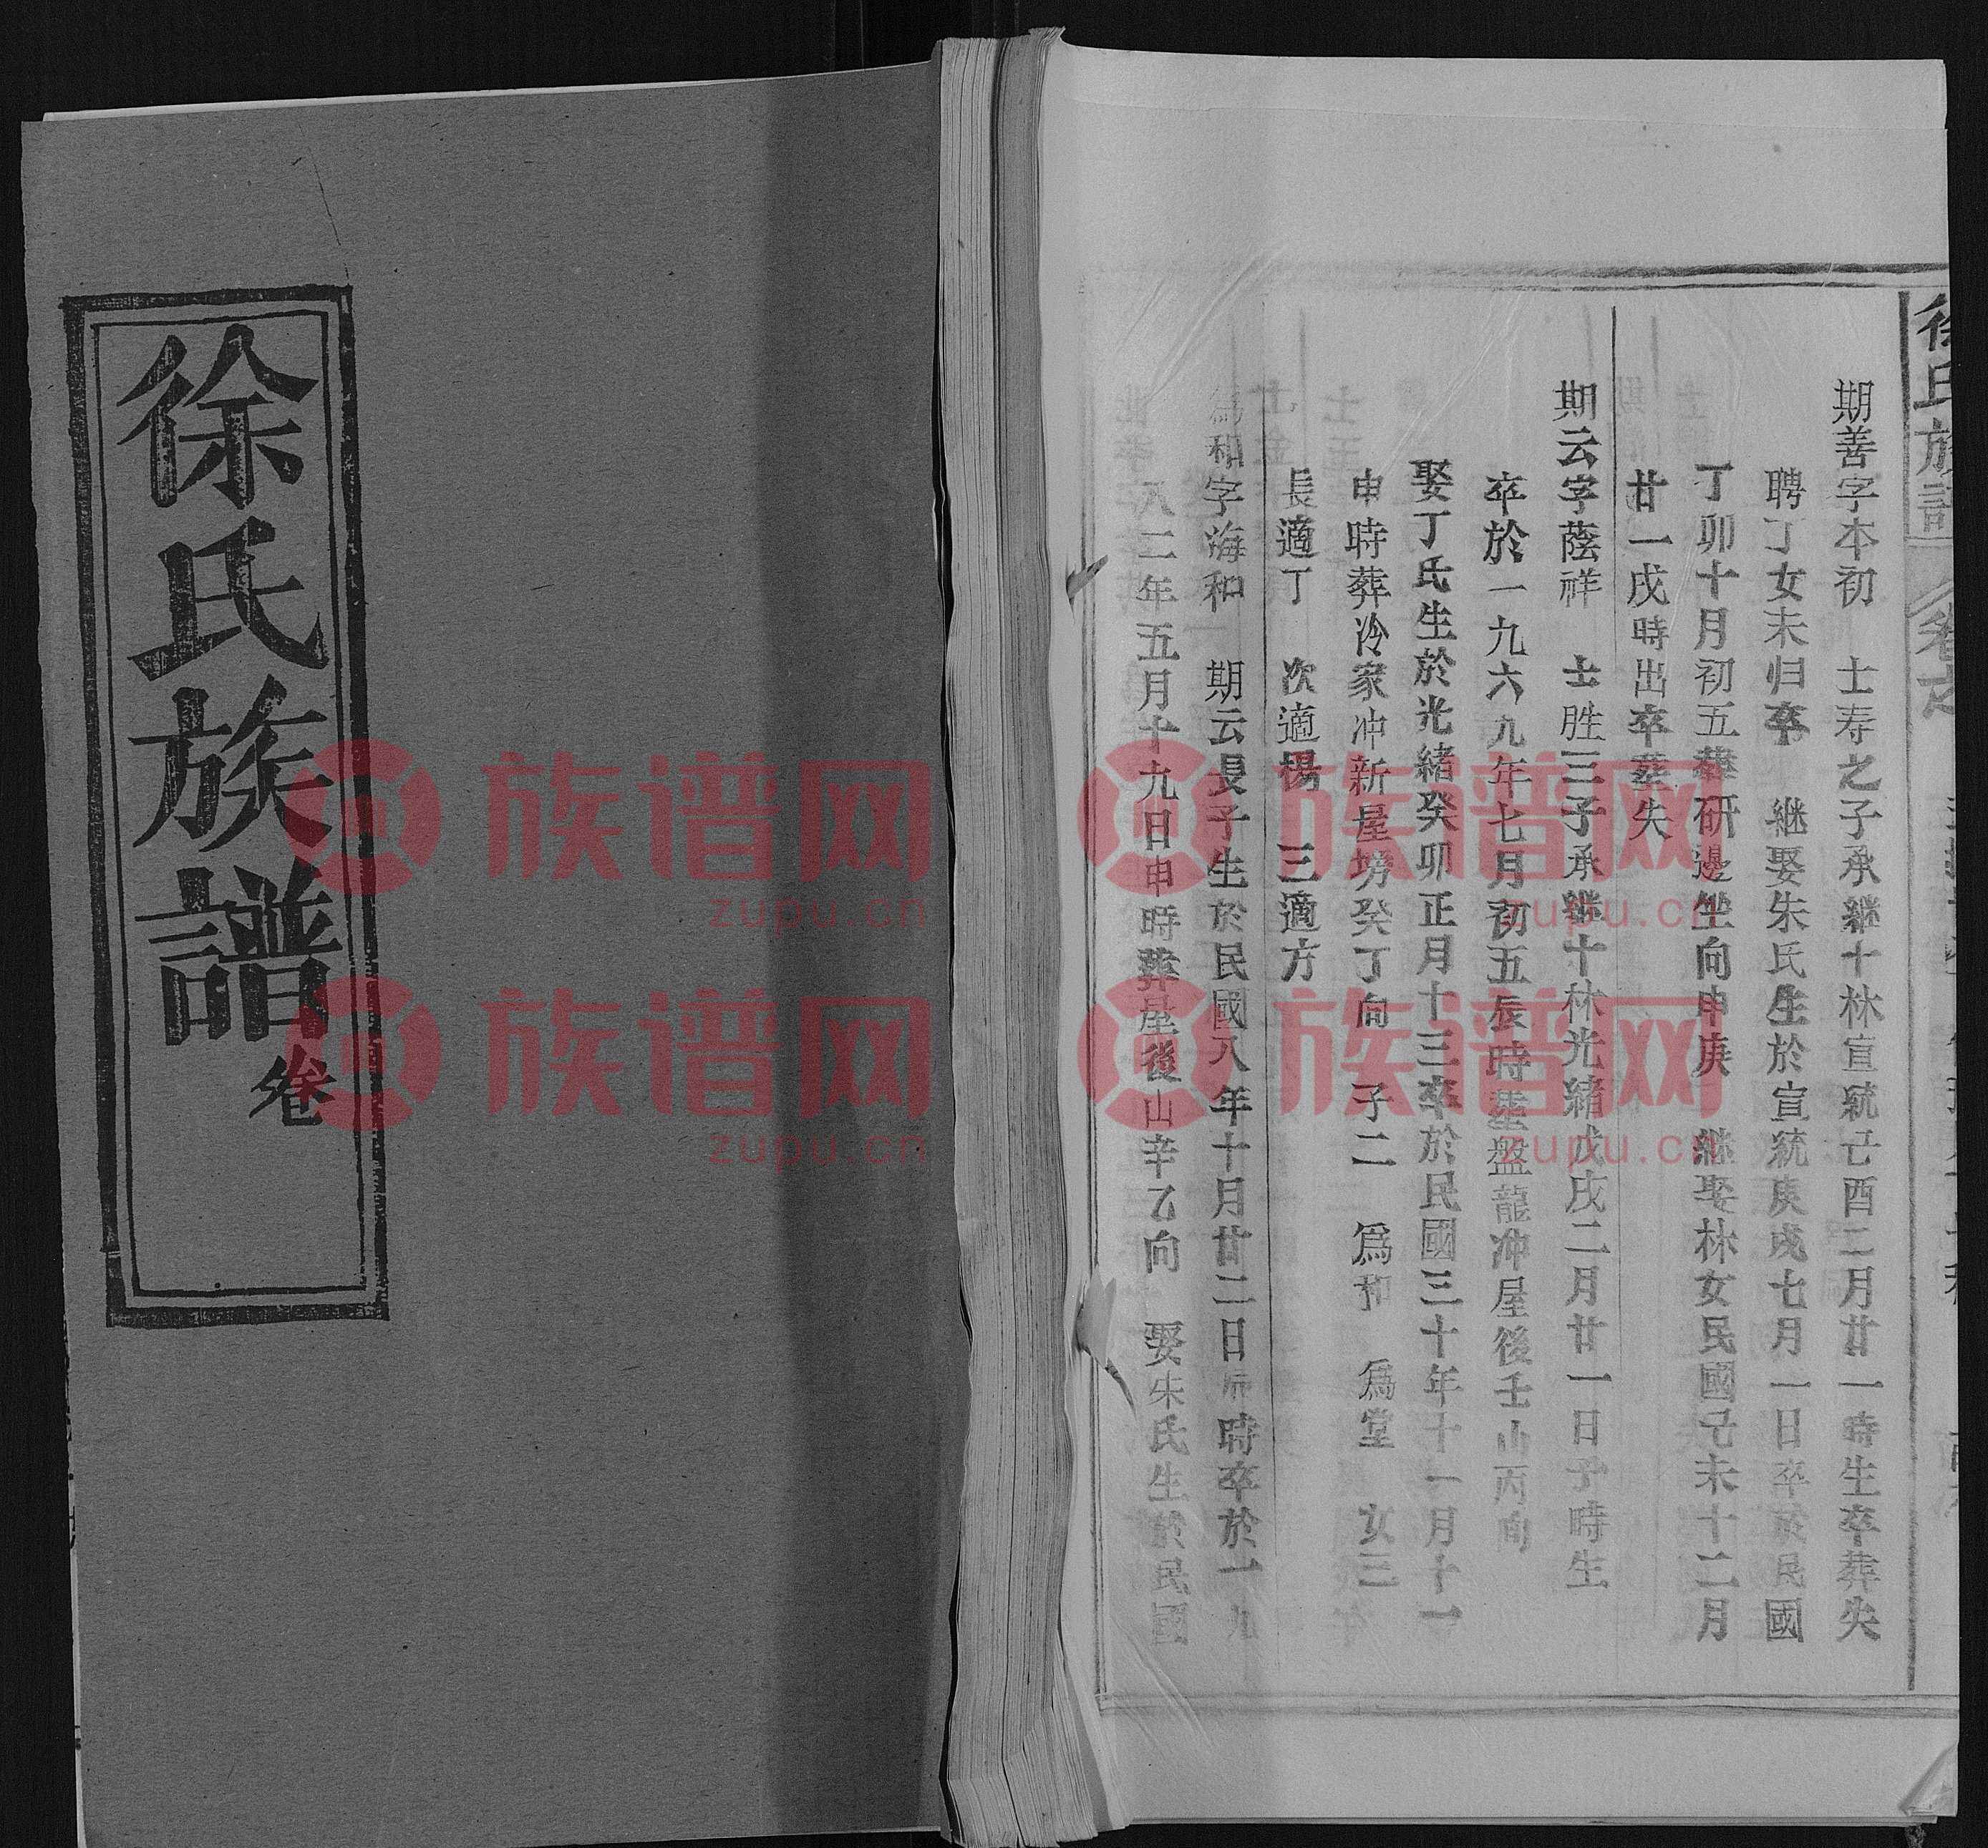 徐氏族譜
期善字本初　士寿之子承継十林宣統己酉二月廿一時生卒葬失
聘丁女未归卒　継娶朱氏生於宣統庚戌七月一日卒於民國
丁卯十月初五葬研邊坐向申庚　継娶林女民國己未十二月
廿一戌時出卒葬失
期云字蔭祥　士胜三子承継十林光緒戊戌二月廿一日子時生
卒於一九六九年七月初五辰時葬盤龍冲屋後壬山丙向
娶丁氏生於光緒癸卯正月十三卒於民國三十年十一月十一
申時葬冷家冲新屋塝癸丁向　子二　爲和　爲堂　女三
長適丁　次適楊　三適方
爲和字海和　期云長子生於民國八年十月廿二日辰時卒於一九
八二年五月十九日申時葬屋後山辛乙向　娶朱氏生於民國
徐氏族譜卷
族谱网
zupu.cn
族谱网
zupu.cn
族谱网
zupu.cn
族谱网
zupu.cn